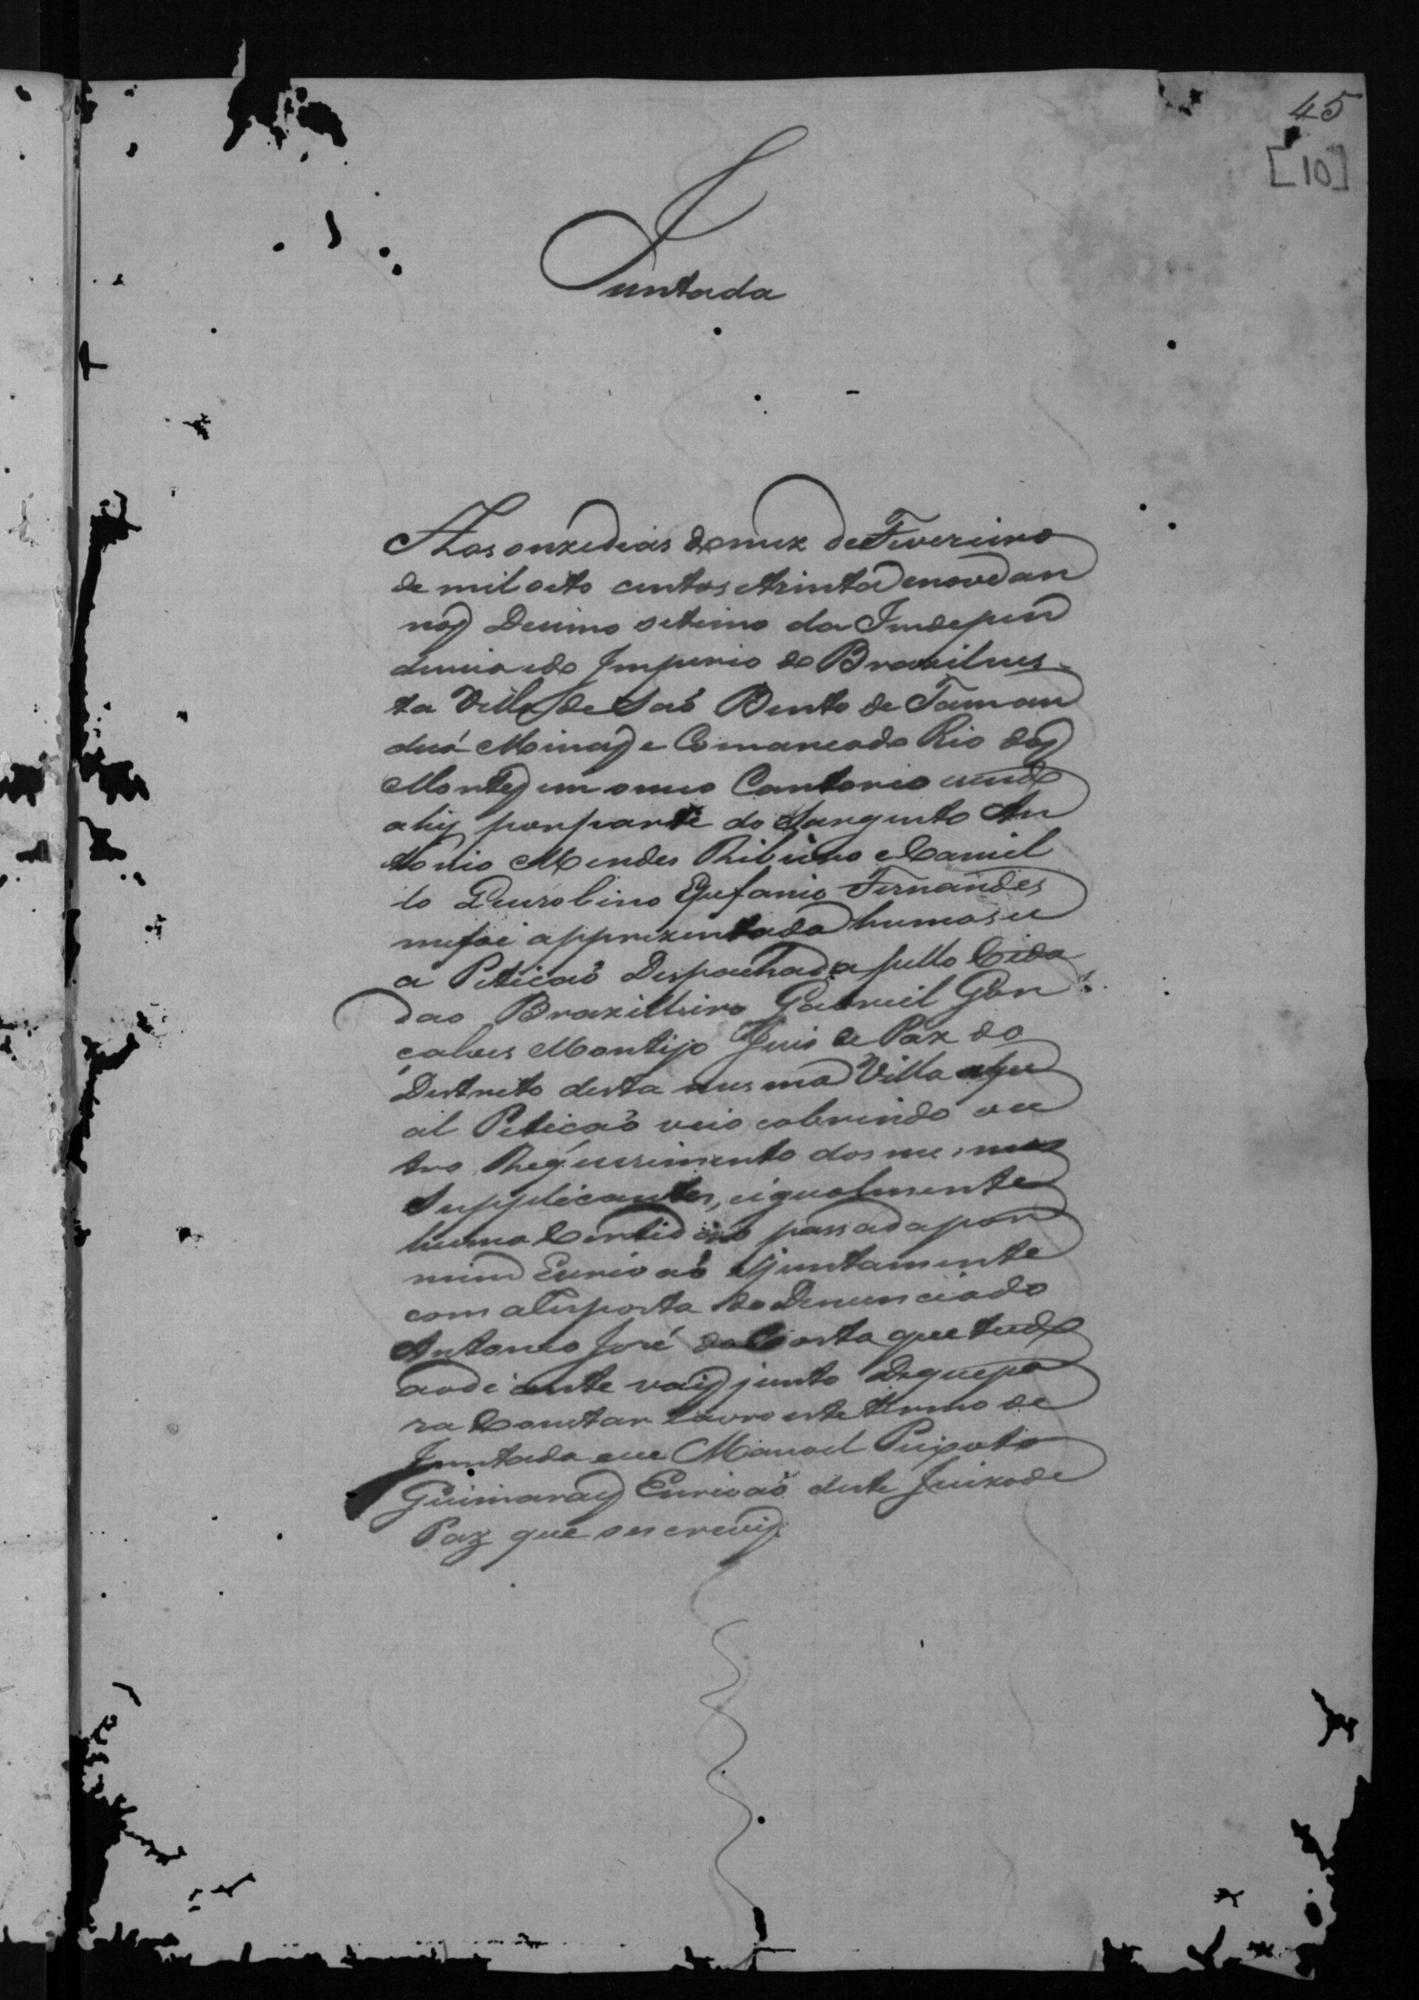 45
[10]
Juntada
Aos onze dias do mez de Fevereiro
de mil oito centos etrinta enove an
nos Decimo setimo da Indepen
dencia edo Imperio do Brazil nes-
ta Villa de Saõ Bento de Taman
duá Minas e Comarca do Rio das
Mortes em omeo Cartorio sendo
ahy por parte do Sargento An
tonio Mendes Ribeiro e Camil
lo Epefanio Fernandes
mefoi apprezentada huma su
a Peticaõ Despachada pello Cida
dao Brazilleiro Gabriel Gon
çalves Montijo Juis de Paz do
Destrito desta mesma Villa aqu
al Peticaõ veio cobrindo ou
tro Requerimento dos mesmos
Supplicantes, eigualmente
huma Certidaõ passada por
mim Escrivaõ ejuntamente
com aResposta do Denunciado
Antonio José da Costa que tudo
aodiante vay junto Deque pa
ra Constar lavro este termo de
Juntada eu Manoel Peixoto
Guimaraes Escrivaõ deste Juizo de
Paz que oescrevy